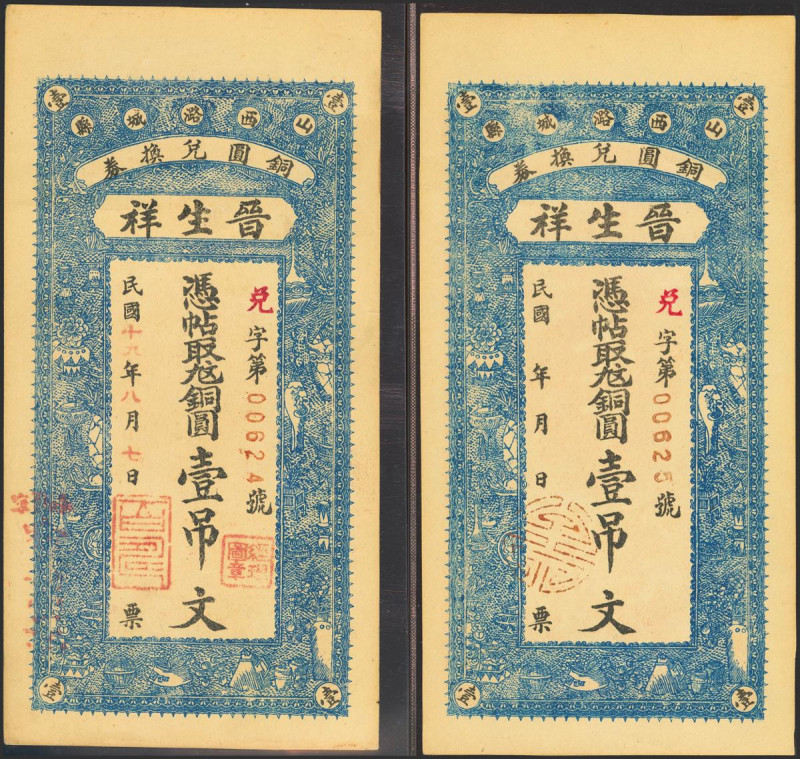 壹 壹
山西潞城縣
銅圓兌換券
晉生祥
兑字第00624號
憑帖取兌銅圓壹吊文
民國十九年八月十七日票
經理圖章
壹 壹
壹 壹
山西潞城縣
銅圓兌換券
晉生祥
兑字第00625號
憑帖取兌銅圓壹吊文
民國 年 月 日票
壹 壹